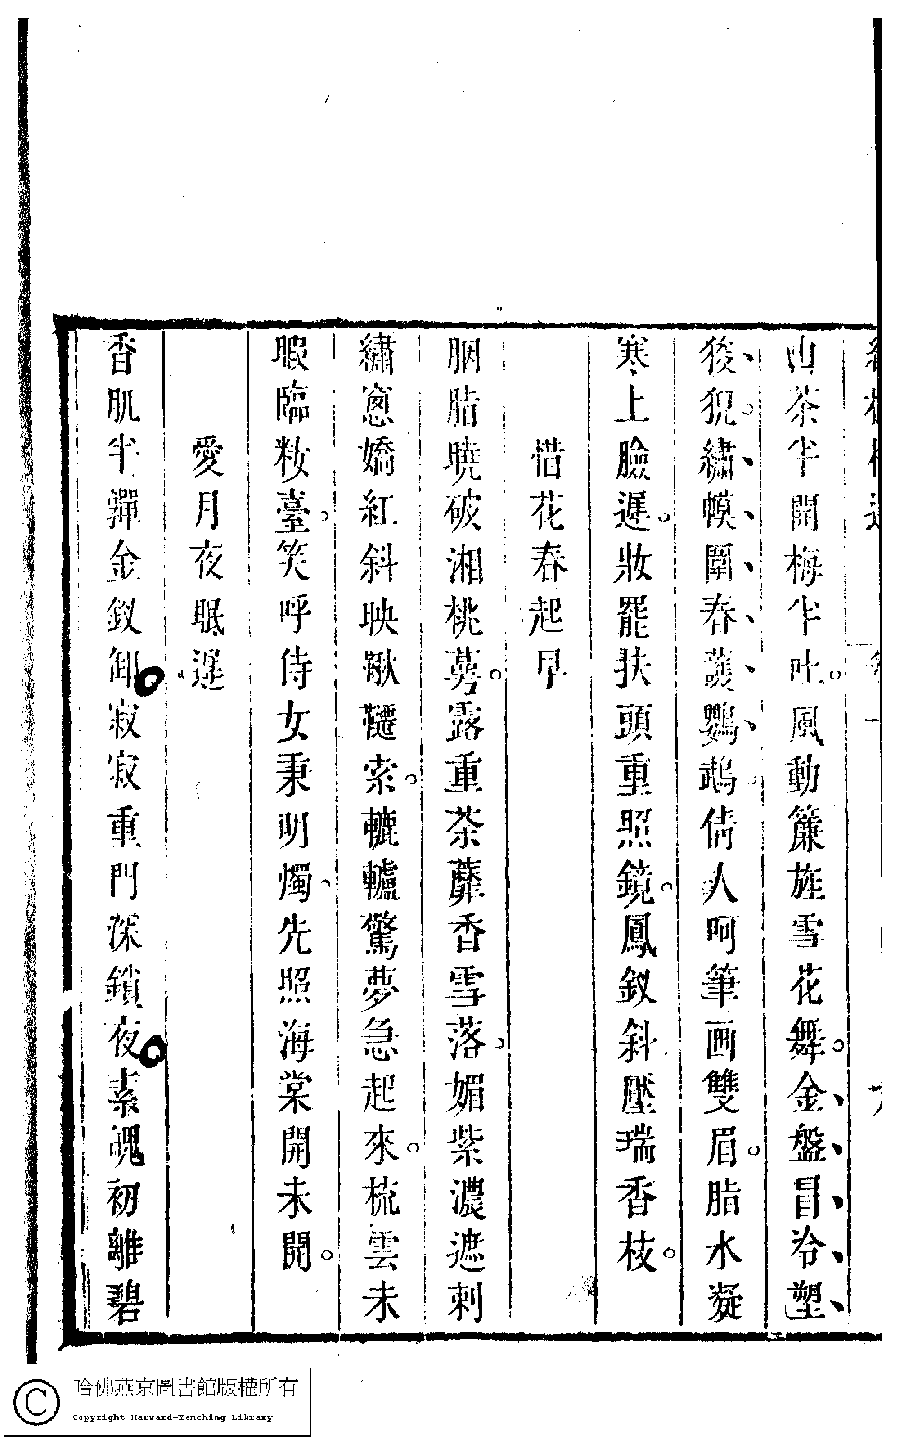 山茶半開梅半吐風動簾旌雪花舞金盤冒冷塑
狻猊繡幙圍春護鸚鵡倩人呵筆画雙眉脂水凝
寒上臉遲妝罷扶頭重照鏡鳳釵斜壓瑞香枝
惜花春起早
胭脂曉破湘桃萼露重荼蘼香雪落媚紫濃遮刺
繡窻嬌紅斜映鞦韆索轆轤驚夢急起來梳雲未
暇臨妝臺笑呼侍女秉明燭先照海棠開未開
愛月夜眠遲
香肌半嚲金釵卸寂寂重門深鎖夜素魄初離碧
哈佛燕京圖書館版權所有
Copyright Harvard-Yenching Library